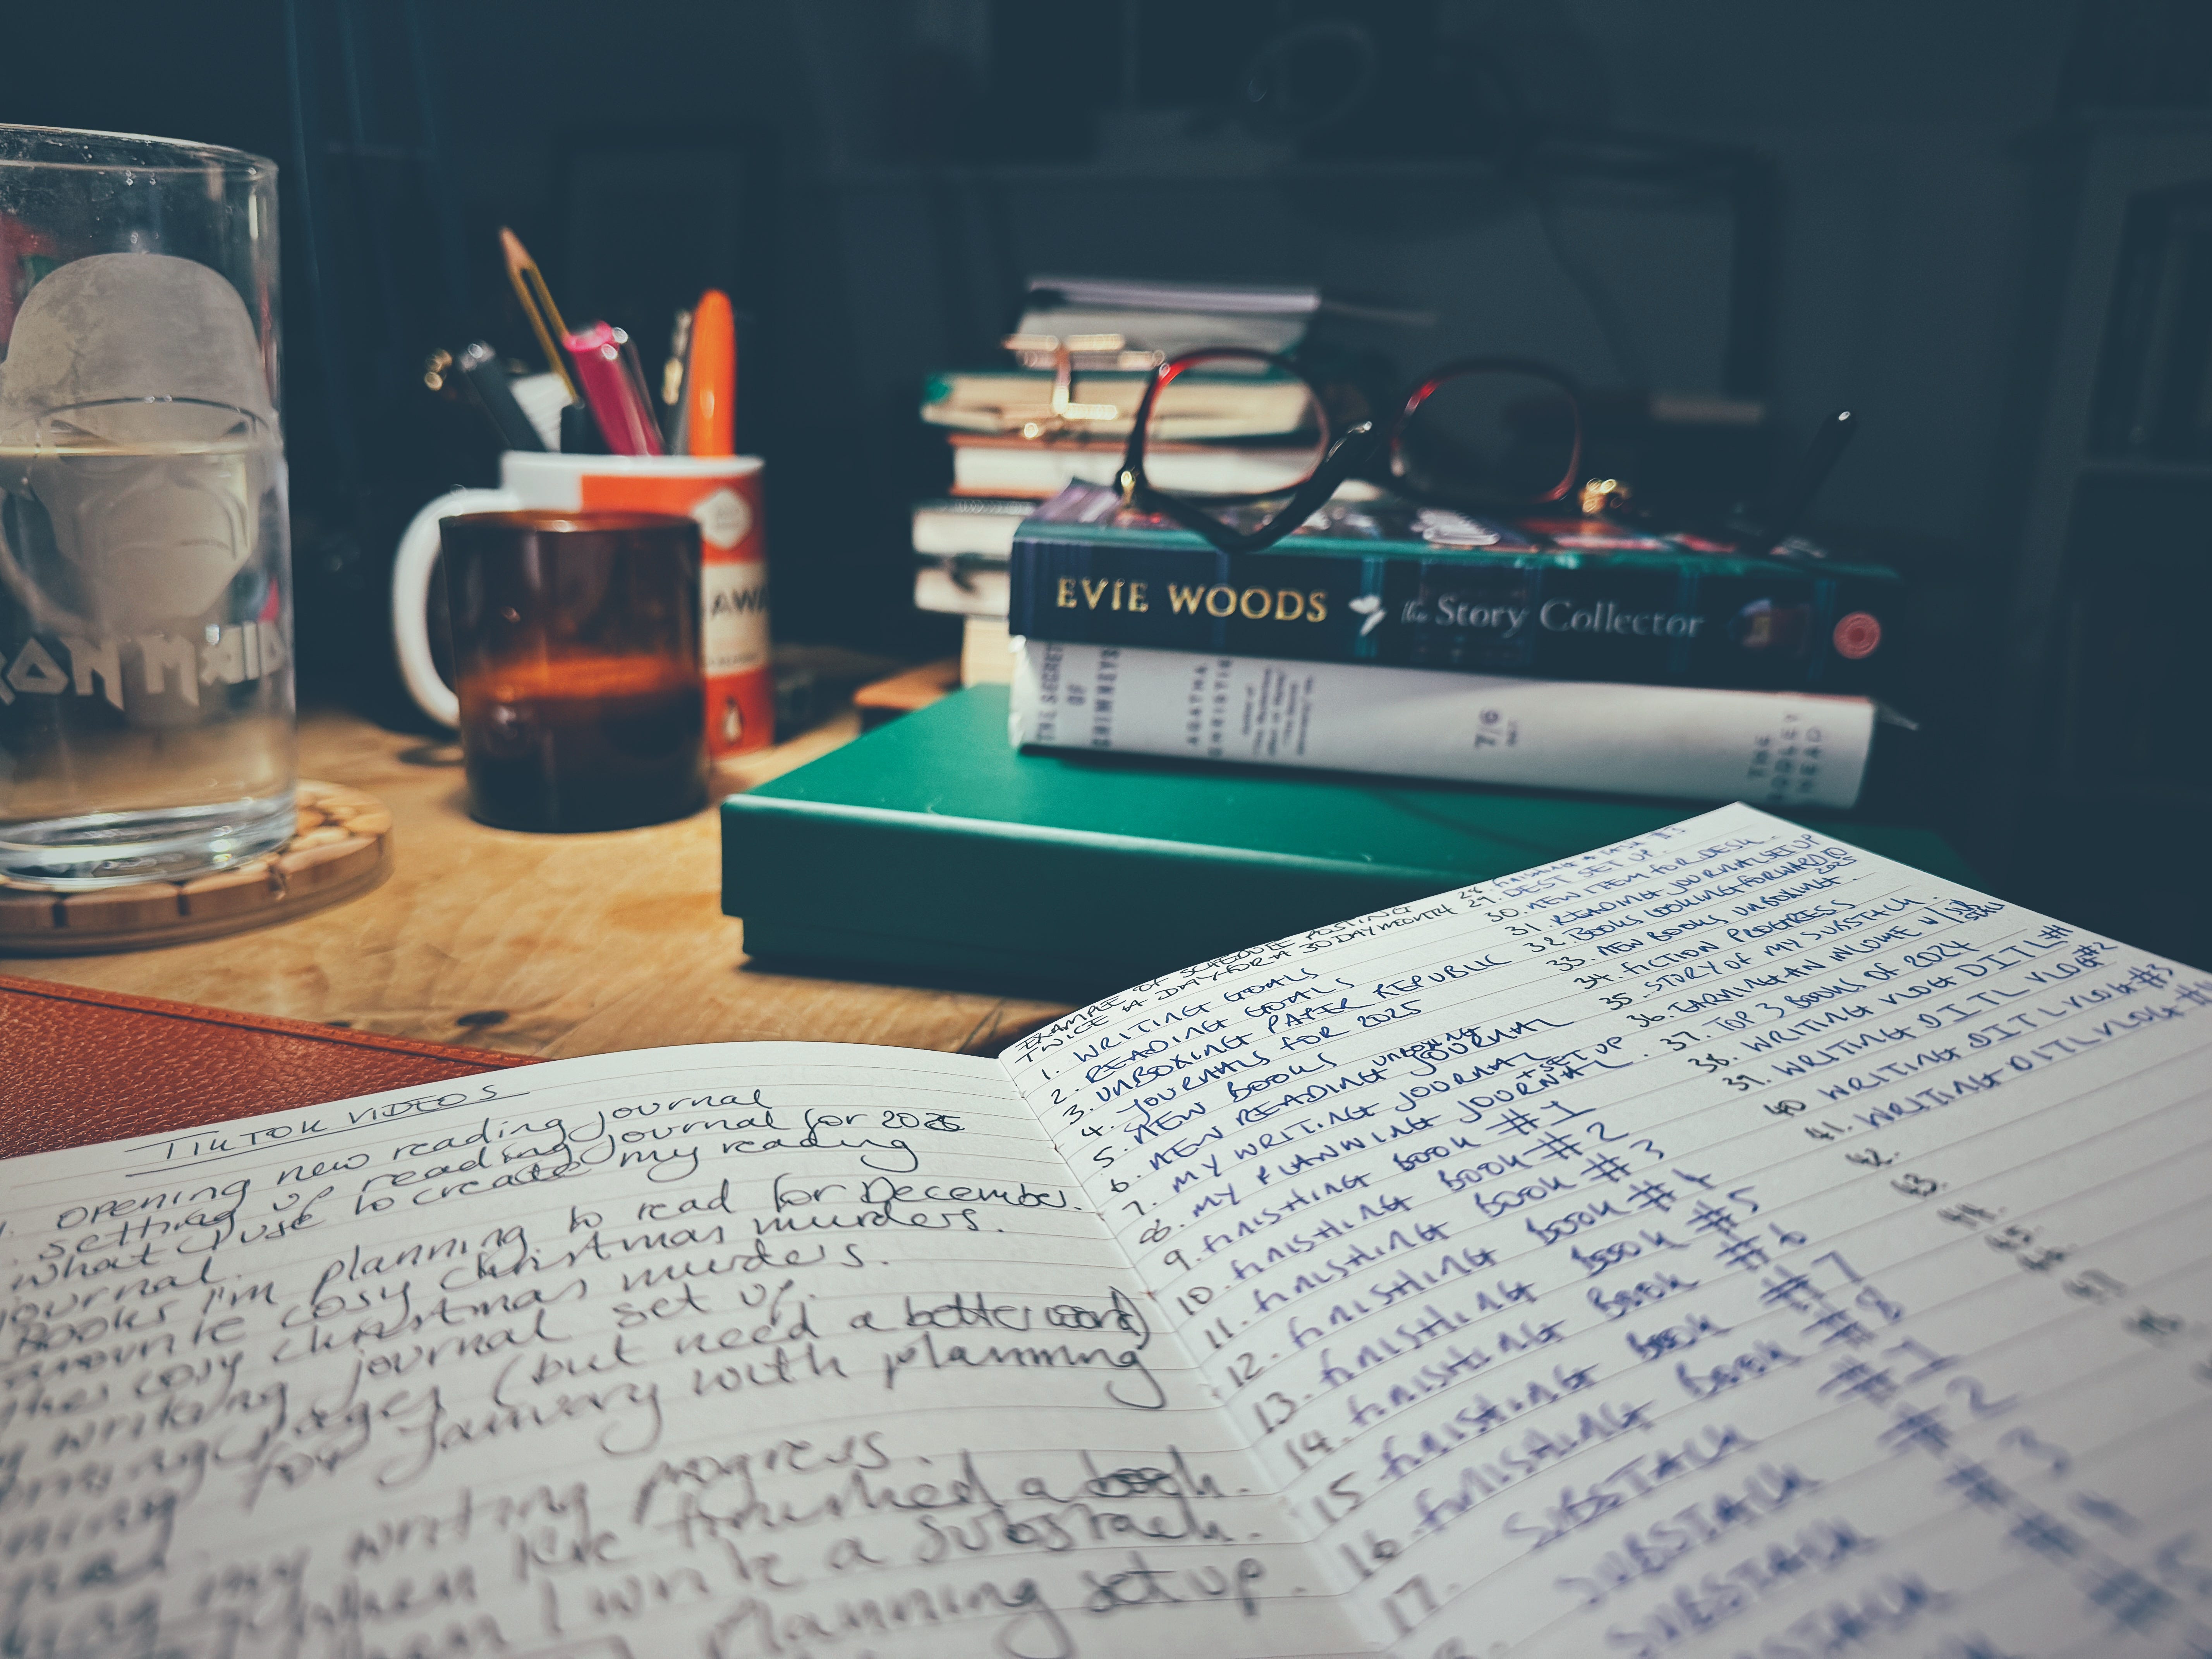 IRON MAIDEN
AWA
EVIE WOODS the Story Collector
THE SECRET OF CHIMNEYS
AGATHA CHRISTIE
7/6
NET
THE BODLEY HEAD
TIKTOK VIDEOS
1. opening new reading journal
setting up reading journal for 2025
what I use to create my reading
journal.
Books I'm planning to read for December.
cosy christmas murders.
cosy christmas murders.
writing journal set up.
pages (but need a better word)
for January with planning
my writing progress.
when I've finished a book.
when I write a substack.
planning set up.
EXAMPLE OF SCHEDULE POSTING
TWICE A DAY FOR A 30 DAY MONTH
1. WRITING GOALS
2. READING GOALS
3. UNBOXING PAPER REPUBLIC
4. JOURNALS FOR 2025
5. NEW BOOKS UNBOXING
6. NEW READING JOURNAL
7. MY WRITING JOURNAL
8. MY PLANNING JOURNAL + SET UP.
9. FINISHING BOOK #1
10. FINISHING BOOK #2
11. FINISHING BOOK #3
12. FINISHING BOOK #4
13. FINISHING BOOK #5
14. FINISHING BOOK #6
15. FINISHING BOOK #7
16. FINISHING BOOK #8
17. SUBSTACK #1
SUBSTACK #2
SUBSTACK #3
SUBSTACK #4
28.
29. DESK SET UP.
30. NEW ITEM FOR DESK
31. READING JOURNAL SET UP
32. BOOKS LOOKING FORWARD TO 2025
33. NEW BOOKS UNBOXING.
34. FICTION PROGRESS
35. STORY OF MY SUBSTACK.
36. EARNING AN INCOME W/ SUB STACK
37. TOP 3 BOOKS OF 2024
38. WRITING VLOG DITL #1
39. WRITING DITL VLOG #2
40 WRITING DITL VLOG #3
41. WRITING DITL VLOG #4
42.
43.
44.
45.
46.
47
48